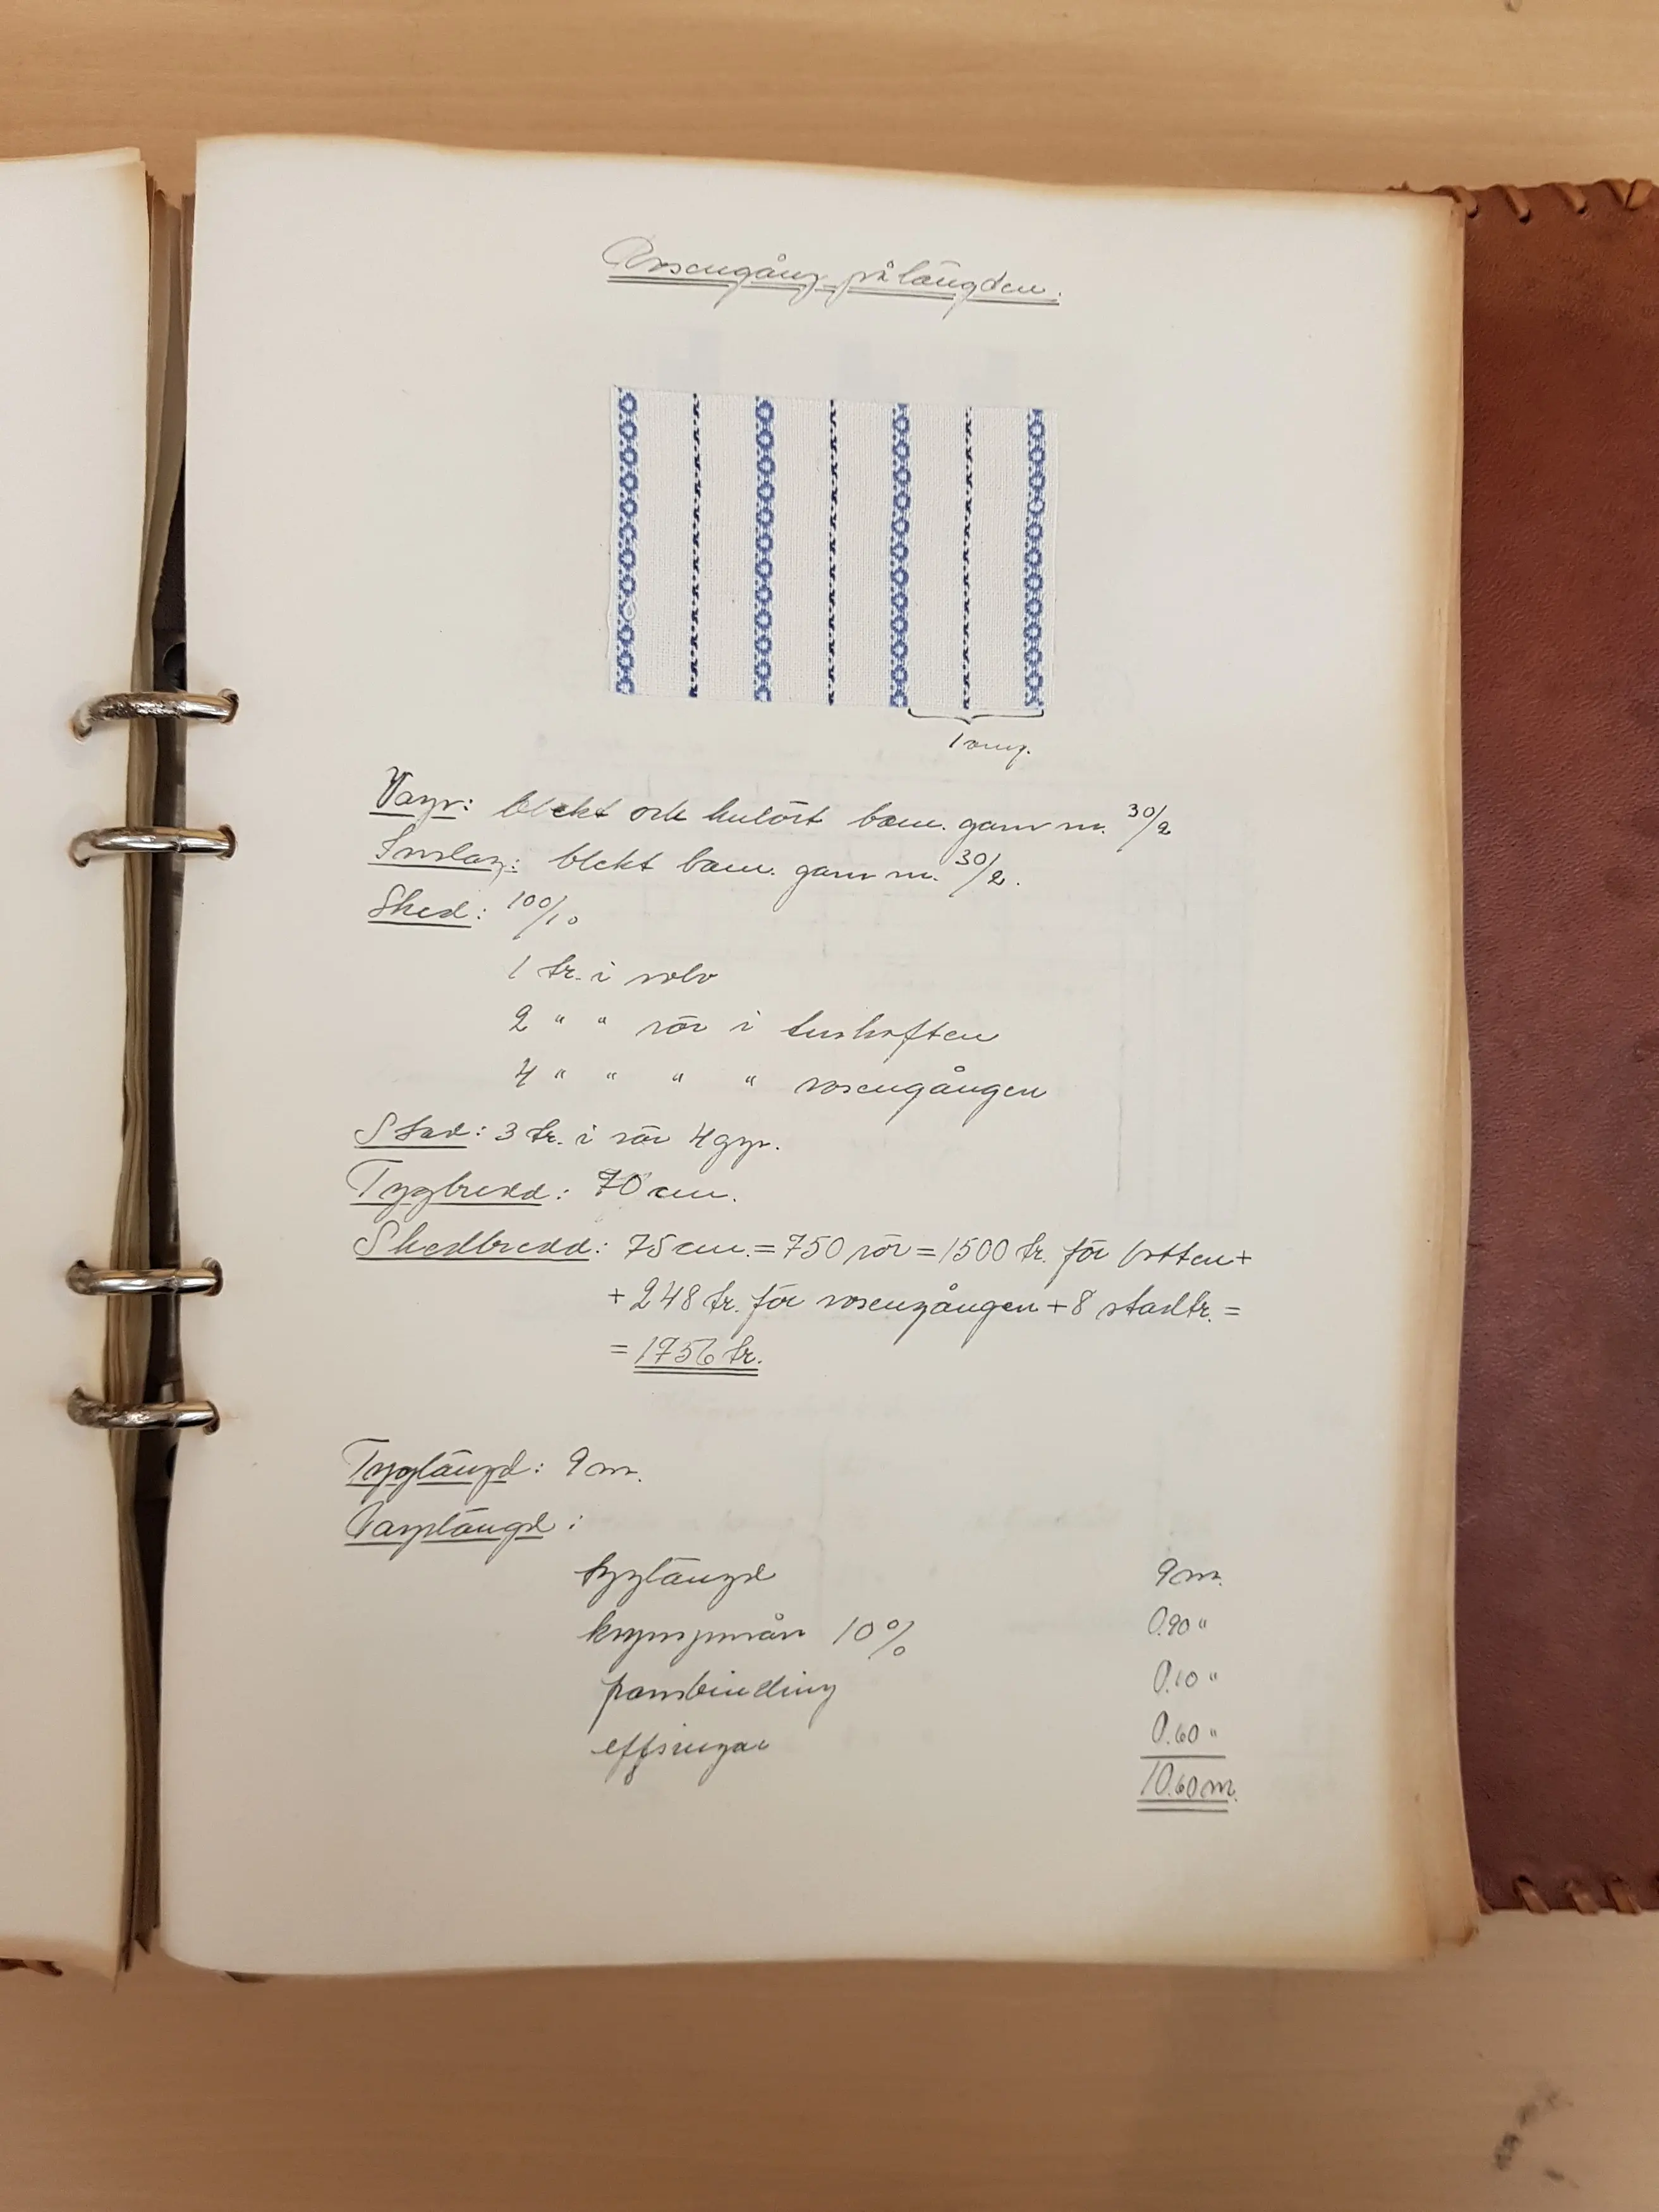 Rosengång på längden.
1 rapp.
Varp: blekt och kulört bom. garn nr. 30/2
Inslag: blekt bom. garn nr. 30/2.
Sked: 100/10
1 tr. i solv
2 " " rör i tuskaften
4 " " " " rosengången
Stad: 3 tr. i rör 4 ggr.
Tygbredd: 70 cm.
Skedbredd: 75 cm. = 750 rör = 1500 tr. för botten +
+ 248 tr. för rosengången + 8 stadtr. =
= 1756 tr.
Tyglängd: 9 m.
Varplängd:
tyglängd 9 m.
krympmån 10% 0.90 "
frambinding 0.10 "
effsingar 0.60 "
10.60 m.